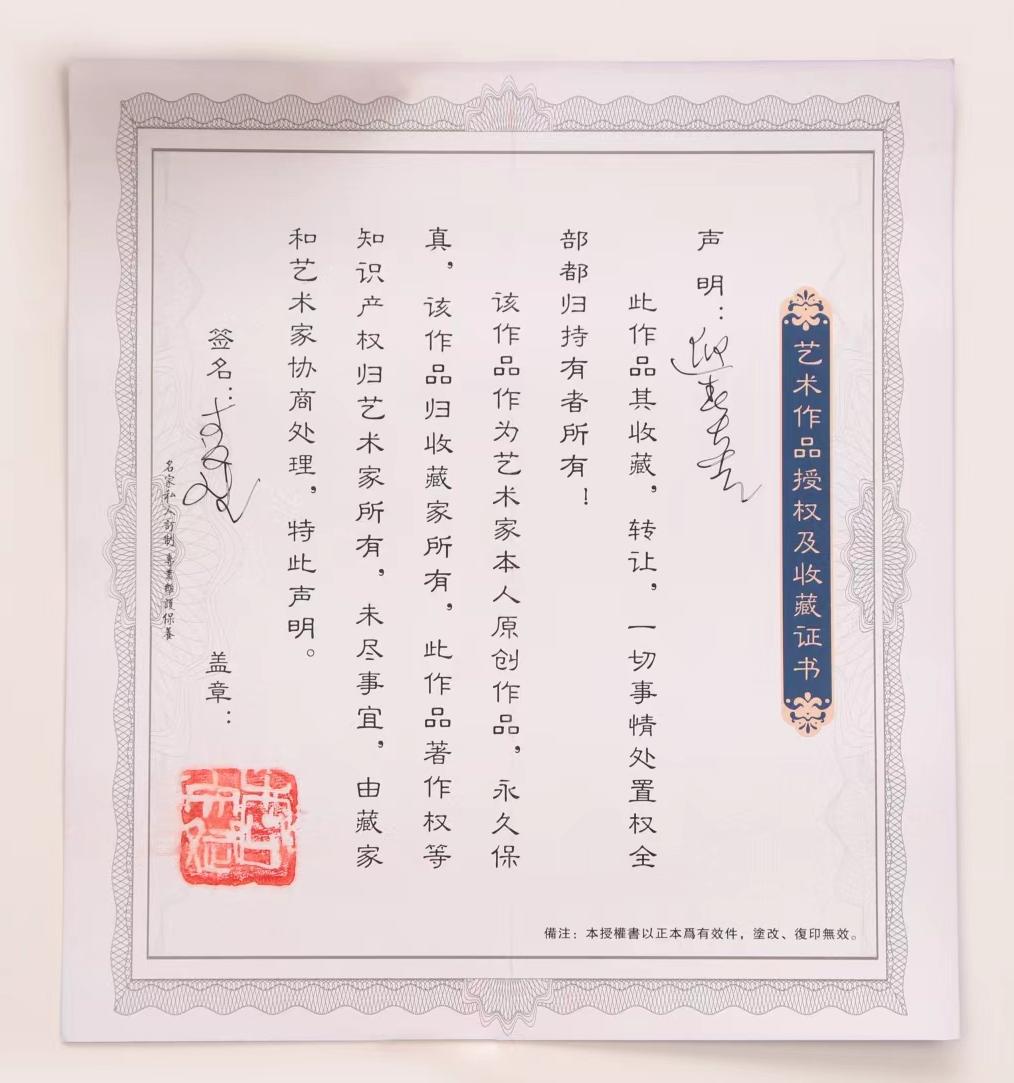 艺术作品授权及收藏证书
声明：
此作品其收藏，转让，一切事情处置权全
部都归持有者所有！
该作品作为艺术家本人原创作品，永久保
真，该作品归收藏家所有，此作品著作权等
知识产权归艺术家所有，未尽事宜，由藏家
和艺术家协商处理，特此声明。
签名：
盖章：
名家私人訂制 專業維護保養
備注：本授權書以正本爲有效件，塗改、復印無效。